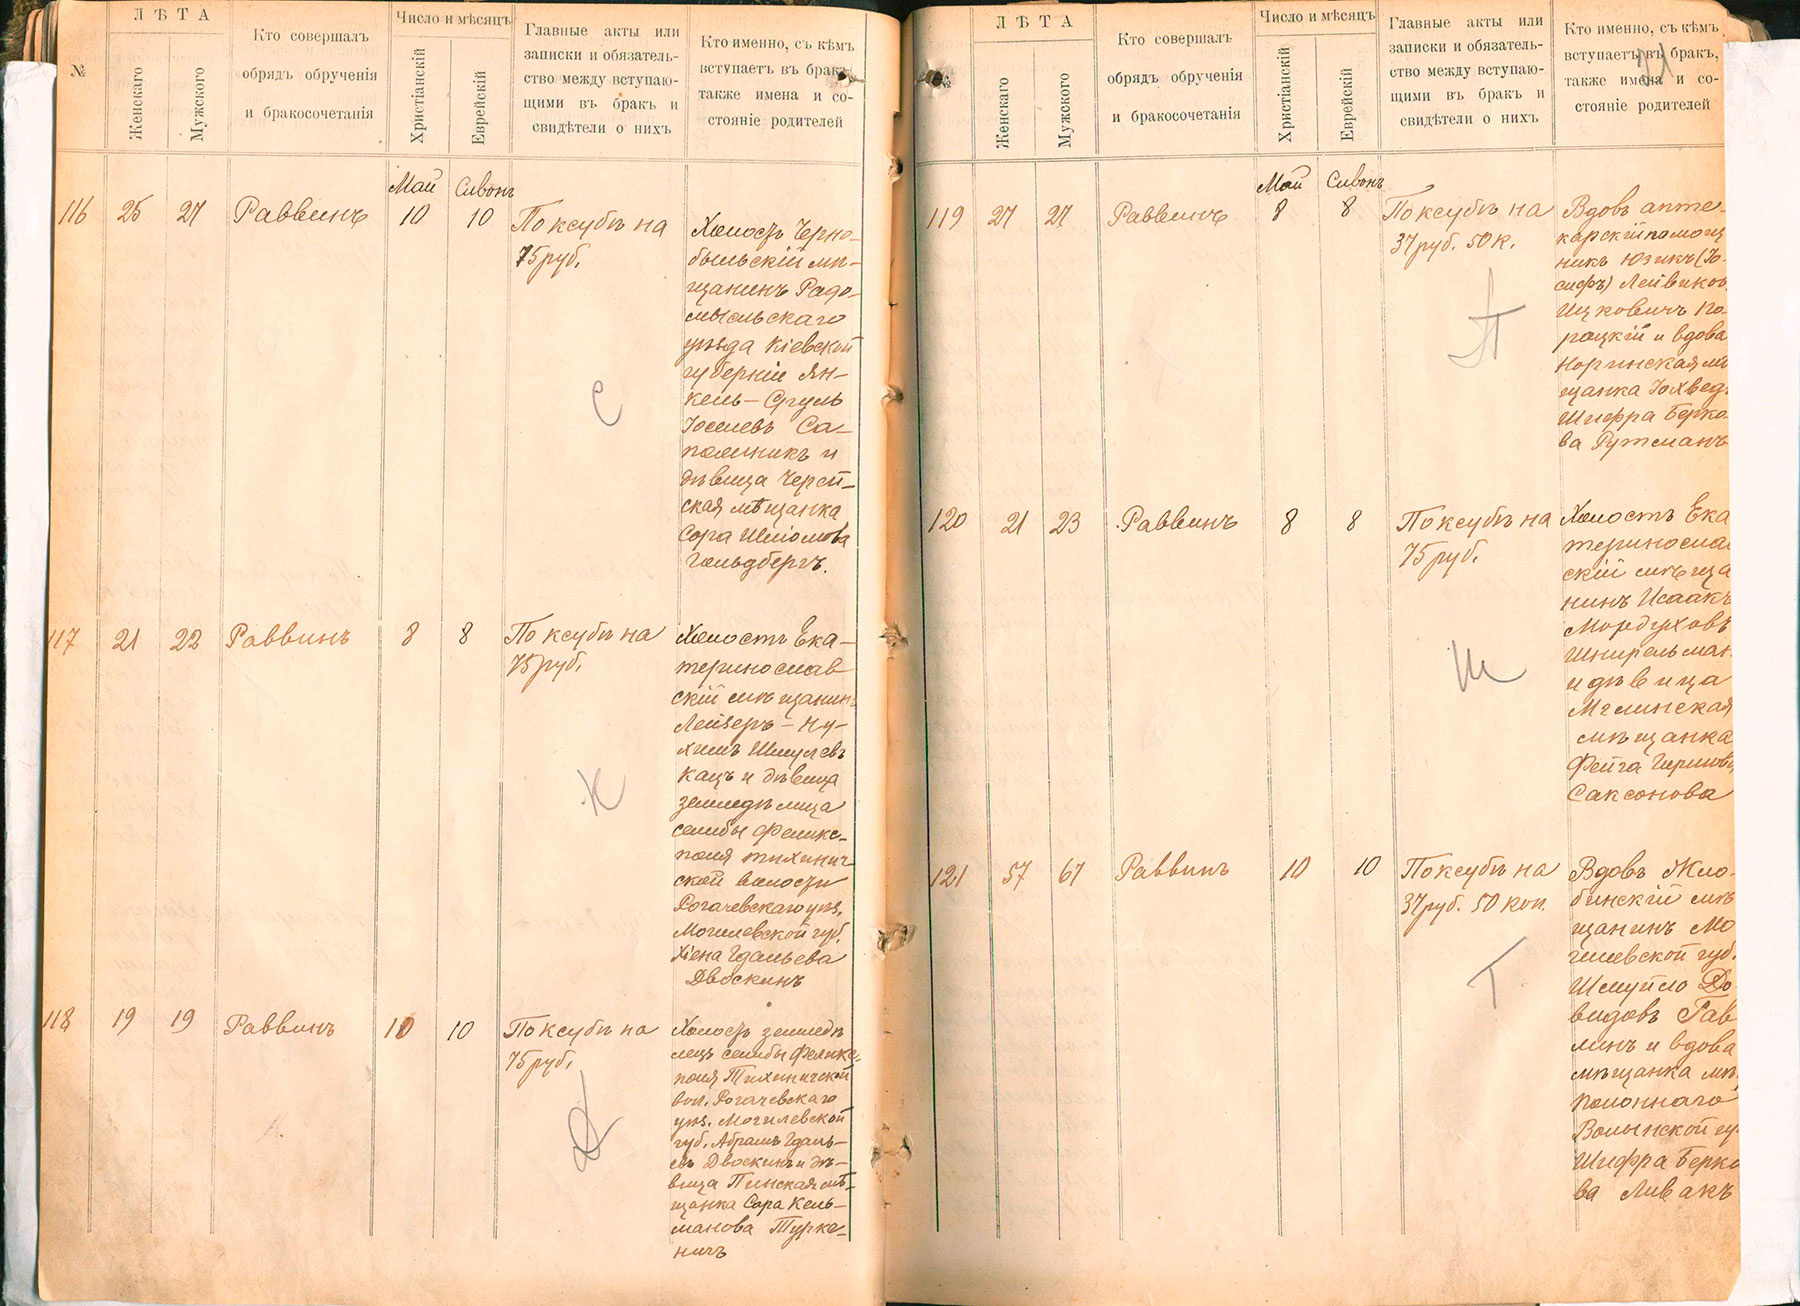 №
ЛѢТА
Женскаго
Мужского
Кто совершалъ
обрядъ обрученія
и бракосочетанія
Число и мѣсяцъ
Христіанскій
Еврейскій
Главные акты или
записки и обязатель-
ство между вступаю-
щими въ бракъ и
свидѣтели о нихъ
Кто именно, съ кѣмъ
вступаетъ въ бракъ,
также имена и со-
стояніе родителей
Май Сивонъ
116 25 27 Раввинъ 10 10 По ксубѣ на
75 руб.
Холостъ Черно-
быльскій мѣ-
щанинъ Радо-
мысльскаго
уѣзда Кіевской
губерніи Ян-
кель-Сруль
Іоселевъ Са-
полникъ и
дѣвица Черей-
ская мѣщанка
Сора Шліомова
Гольдбергъ.
С
117 21 22 Раввинъ 8 8 По ксубѣ на
75 руб.
Холостъ Ека-
теринослав
скій мѣщанинъ
Лейзеръ-Ну-
химъ Шмулевъ
Кацъ и дѣвица
земледѣлица
селибы Феликс-
поля Тихинич-
ской волости
Рогачевскаго уѣз.
Могилевской губ.
Хіена Гдальева
Двоскинъ
К
118 19 19 Раввинъ 10 10 По ксубѣ на
75 руб.
Холостъ земледѣ
лецъ селибы Феликс-
поля Тихиничской
вол. Рогачевскаго
уѣз. Могилевской
губ. Абрамъ Гдаль-
евъ Двоскинъ и дѣ-
вица Пинская мѣ-
щанка Сара Кель-
манова Турке-
ничъ
Д
№
ЛѢТА
Женскаго
Мужского
Кто совершалъ
обрядъ обрученія
и бракосочетанія
Число и мѣсяцъ
Христіанскій
Еврейскій
Главные акты или
записки и обязатель-
ство между вступаю-
щими въ бракъ и
свидѣтели о нихъ
Кто именно, съ кѣмъ
вступаетъ въ бракъ,
также имена и со-
стояніе родителей
Май Сивонъ
119 27 27 Раввинъ 8 8 По ксубѣ на
37 руб. 50 к.
Вдовъ апте-
карскій помощ
никъ Юзикъ (Іо-
сифъ) Лейвиков
Ицковичъ По-
рацкій и вдова
Норинская мѣ
щанка Іохвед-
Шифра Берко-
ва Рутманъ
П
120 21 23 Раввинъ 8 8 По ксубѣ на
75 руб.
Холостъ Ека
теринослав
скій мѣща
нинъ Исаакъ
Мордуховъ
Шнирельман
и дѣвица
Мглинская
мѣщанка
Фейга Гиршова
Саксонова
Ш
121 57 67 Раввинъ 10 10 По ксубѣ на
37 руб. 50 коп.
Вдовъ Жло-
бинскій мѣ
щанинъ Мо
гилевской губ.
Шмуйло До
видовъ Гав
линъ и вдова
мѣщанка мѣ.
Полоннаго
Волынской гу-
Шифра Берко
ва Ливакъ
Г